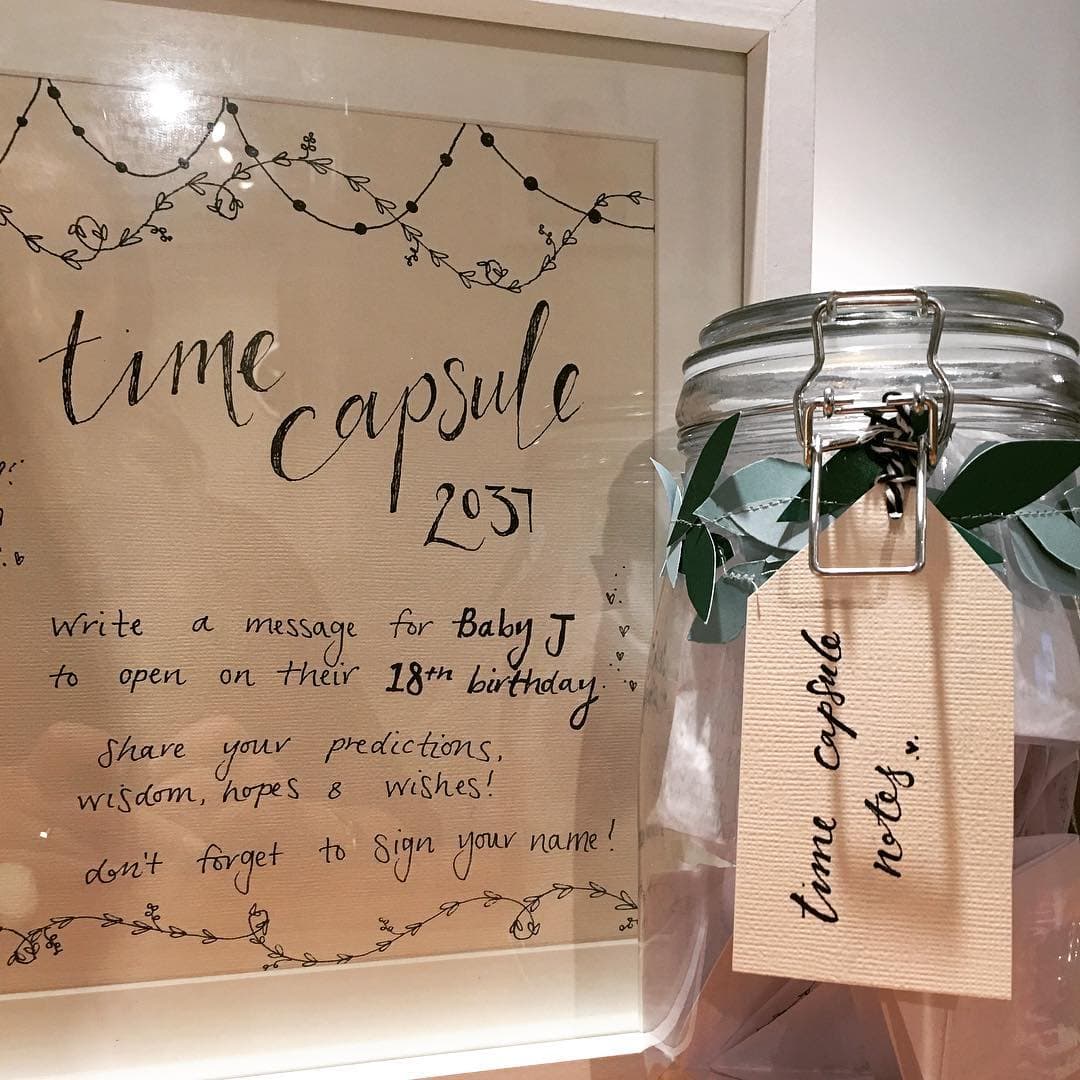 time
capsule
2037
write a message for Baby J
to open on their 18th birthday.
Share your predictions,
wisdom, hopes & wishes!
don't forget to sign your name!
time capsule
notes